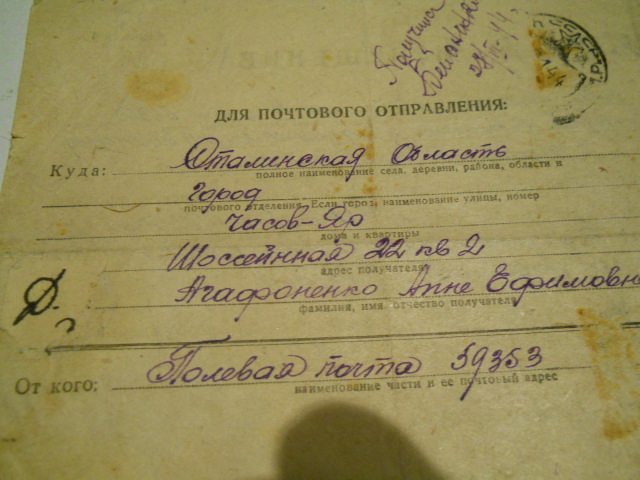 28/VII-44.
ДЛЯ ПОЧТОВОГО ОТПРАВЛЕНИЯ:
Куда: Сталинская Область
полное наименование села, деревни, района, области и
город
почтового отделения. Если город, наименование улицы, номер
Часов-Яр
дома и квартиры
Шоссейнная 22 кв 2
адрес получателя
Агафоненко Анне Ефимовне
фамилия, имя, отчество получателя
От кого: Полевая почта 39353
наименование части и ее почтовый адрес